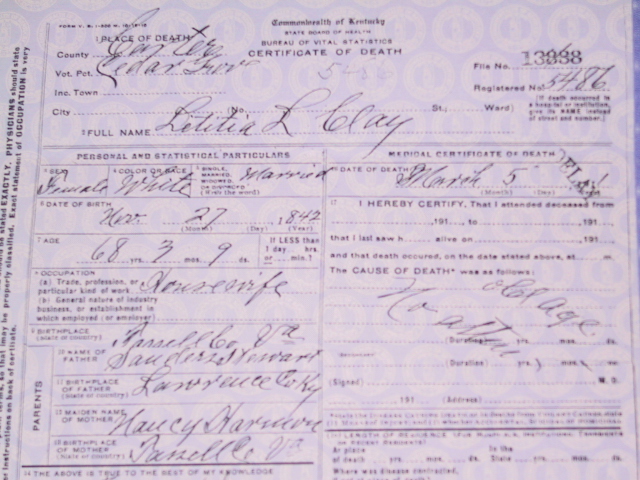 FORM V. S.
Commonwealth of Kentucky
STATE BOARD OF HEALTH
BUREAU OF VITAL STATISTICS
CERTIFICATE OF DEATH
1 PLACE OF DEATH
County Carter
Vot. Pct. Cedar
Inc. Town
City (No. St., Ward)
File No. 13238
Registered No. 5486
(If death occurred in a hospital or institution, give its NAME instead of street and number.)
2 FULL NAME Letitia L Clay
PERSONAL AND STATISTICAL PARTICULARS
3 SEX Female
4 COLOR OR RACE White
5 SINGLE, MARRIED, WIDOWED OR DIVORCED (Write the word) Married
6 DATE OF BIRTH
Nov 27 1842
(Month) (Day) (Year)
7 AGE
68 yrs. 3 mos. 9 ds.
If LESS than 1 day hrs. or min.?
8 OCCUPATION
(a) Trade, profession, or particular kind of work Housewife
(b) General nature of industry business, or establishment in which employed (or employer)
9 BIRTHPLACE
(State or country) Russell Co Va
PARENTS
10 NAME OF FATHER Sanders Stewart
11 BIRTHPLACE OF FATHER
(State or country) Lawrence Co Ky
12 MAIDEN NAME OF MOTHER Nancy Harmon
13 BIRTHPLACE OF MOTHER
(State or country) Russell Co Va
14 THE ABOVE IS TRUE TO THE BEST OF MY KNOWLEDGE
MEDICAL CERTIFICATE OF DEATH
DATE OF DEATH
March 5
(Month) (Day)
17 I HEREBY CERTIFY, That I attended deceased from
191 to 191
that I last saw h alive on 191
and that death occured, on the date stated above, at m.
The CAUSE OF DEATH* was as follows:
Old age
No
(Duration) yrs. mos. ds.
(Duration) yrs. mos. ds.
(Signed) M. D.
191 (Address)
At place of death yrs. mos. ds.
In the State yrs. mos. ds.
Where was disease contracted,
stated EXACTLY. PHYSICIANS should state
Exact statement of OCCUPATION is very
so that it may be properly classified.
instructions on back of certificate.